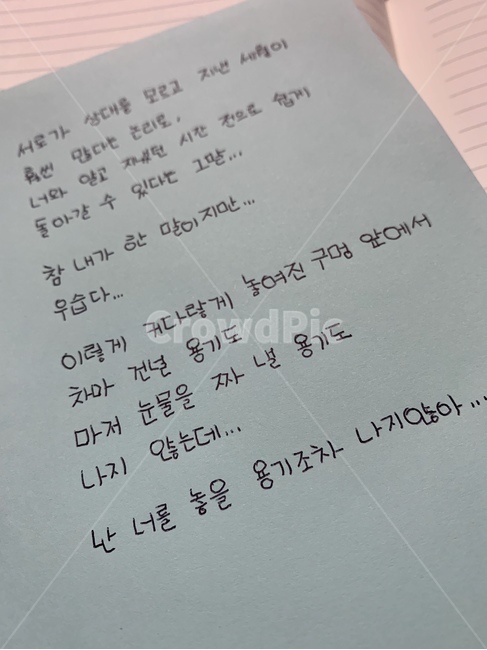 서로가 상대를 모르고 지낸 세월이
훨씬 많다는 논리로,
너와 알고 지냈던 시간 전으로 쉽게
돌아갈 수 있다는 그말...
참 내가 한 말이지만...
우습다...
이렇게 커다랗게 놓여진 구멍 앞에서
차마 건널 용기도
마저 눈물을 짜 낼 용기도
나지 않는데...
난 너를 놓을 용기조차 나지않아...
CrowdPic